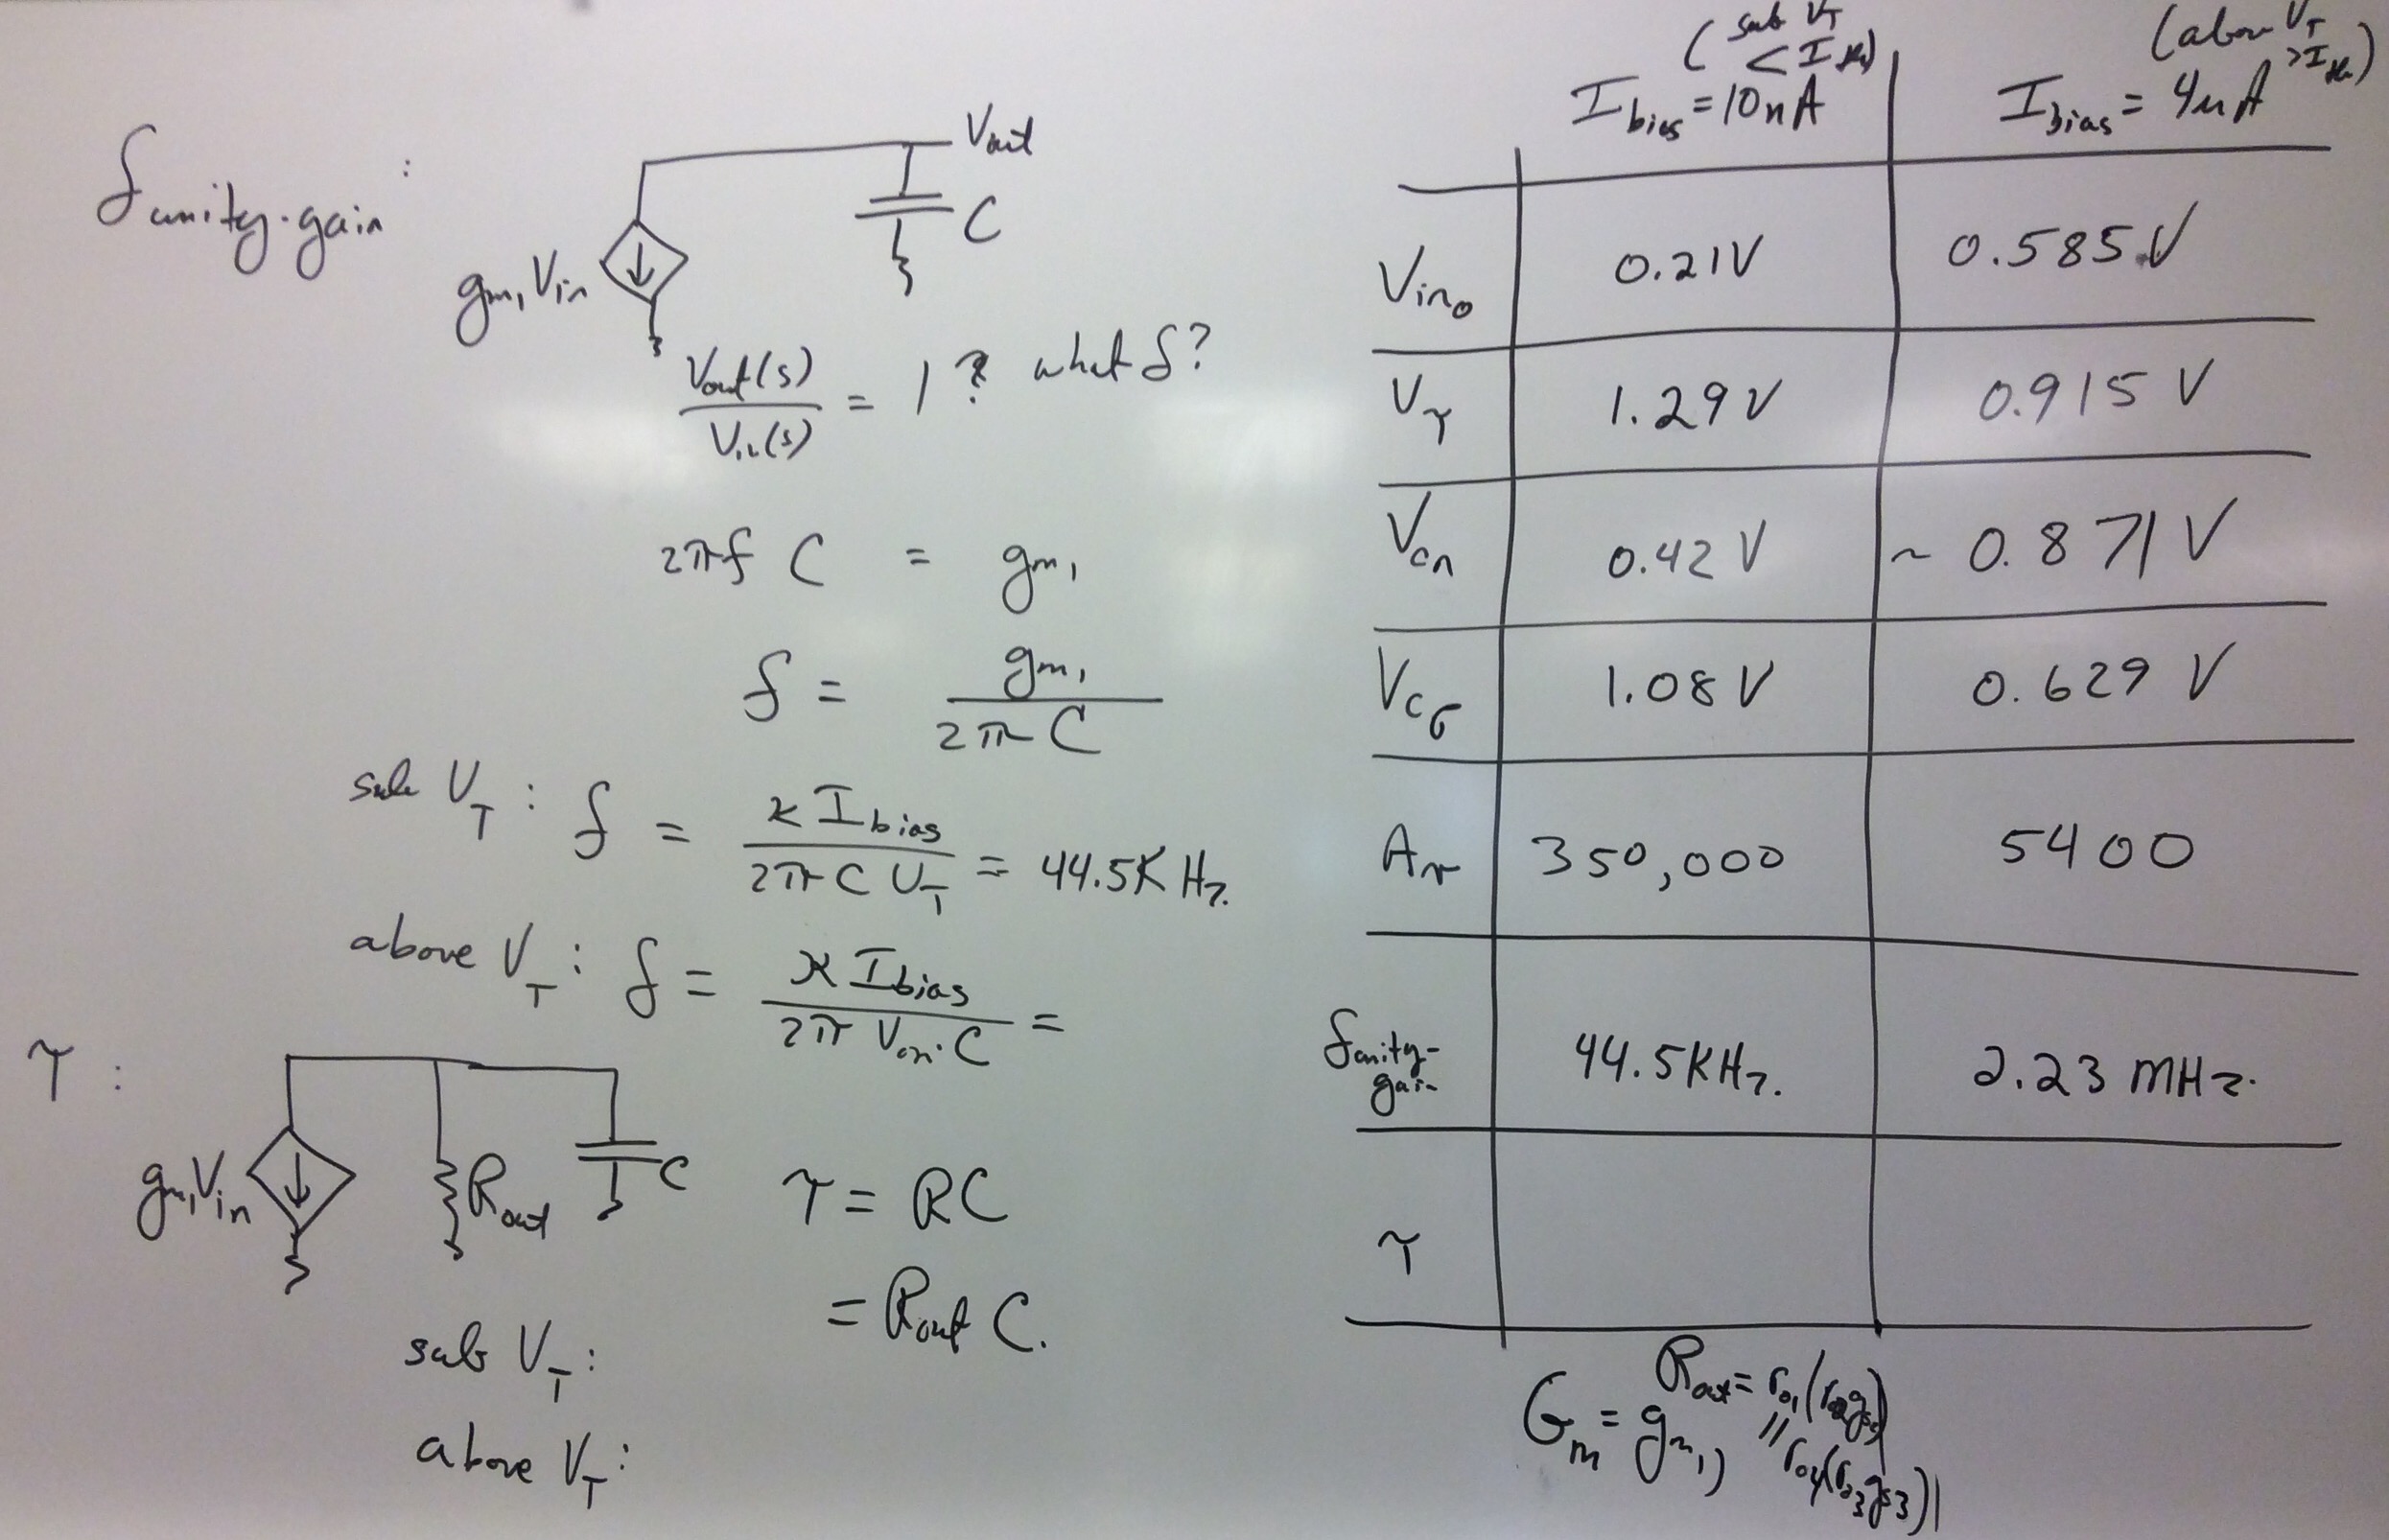 f unity-gain :
Vout
C
gm1 Vin
Vout(s) / Vin(s) = 1 ? what f?
2πf C = gm1
f = gm1 / 2πC
sub VT : f = κ Ibias / 2πC UT = 44.5K Hz.
above VT : f = κ Ibias / 2π Von·C =
τ :
gm1Vin
Rout
C
τ = RC
= Rout C.
sub VT :
above VT :
(sub VT
< Ith)
Ibias = 10nA
(above VT
> Ith)
Ibias = 4uA
Vin0 0.21V 0.585V
Vτ 1.29V 0.915 V
Vcn 0.42 V ~ 0.871 V
Vcσ 1.08V 0.629 V
Av 350,000 5400
f unity-gain 44.5KHz. 2.23 MHz.
τ
Gm = gm1,
Rout = ro1(ro2gs2)
// ro4(ro3gs3)